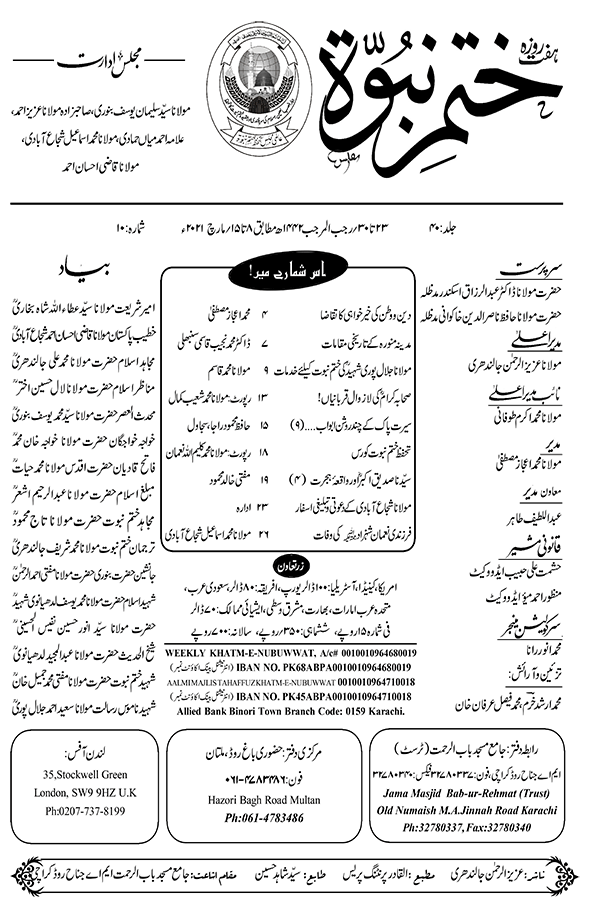 ہفت روزہ
ختم نبوۃ
مجلس ادارت
مولانا سید سلیمان یوسف بنوری، صاحبزادہ مولانا عزیز احمد،
علامہ احمد میاں حمادی، مولانا محمد اسماعیل شجاع آبادی،
مولانا قاضی احسان احمد
جلد: ۴۰
۲۳ تا ۳۰؍ رجب المرجب ۱۴۴۲ھ مطابق ۸ تا ۱۵؍ مارچ ۲۰۲۱ء
شمارہ: ۱۰
سرپرست
حضرت مولانا ڈاکٹر عبدالرزاق اسکندر مدظلہ
حضرت مولانا حافظ ناصر الدین خاکوانی مدظلہ
مدیر اعلیٰ
مولانا عزیز الرحمٰن جالندھری
نائب مدیر اعلیٰ
مولانا محمد اکرم طوفانی
مدیر
مولانا محمد اعجاز مصطفیٰ
معاون مدیر
عبداللطیف طاہر
قانونی مشیر
حشمت علی حبیب ایڈووکیٹ
منظور احمد میؤ ایڈووکیٹ
سرکولیشن منیجر
محمد انور رانا
تزئین و آرائش:
محمد ارشد خرم، محمد فیصل عرفان خان
اس شمارے میں!
دین و وطن کی خیر خواہی کا تقاضا ۴ محمد اعجاز مصطفیٰ
مدینہ منورہ کے تاریخی مقامات ۷ ڈاکٹر محمد نجیب قاسمی سنبھلی
مولانا جلال پوری شہیدؒ کی ختم نبوت کیلئے خدمات ۹ مولانا محمد قاسم
صحابہ کرامؓ کی لازوال قربانیاں! ۱۳ رپورٹ: مولانا محمد شعیب کمال
سیرت پاک کے چند روشن ابواب....(۹) ۱۵ حافظ محمود راجا، سجاول
تحفظ ختم نبوت کورس ۱۸ رپورٹ: مولانا محمد کلیم اللہ نعمان
سیدنا صدیق اکبرؓ اور واقعۂ ہجرت (۴) ۱۹ مفتی خالد محمود
مولانا شجاع آبادی کے دعوتی و تبلیغی اسفار ۲۳ ادارہ
فرزندی نعمان شہزاد کی وفات ۲۶ مولانا محمد اسماعیل شجاع آبادی
بیاد
امیر شریعت مولانا سید عطاء اللہ شاہ بخاریؒ
خطیب پاکستان مولانا قاضی احسان احمد شجاع آبادیؒ
مجاہد اسلام حضرت مولانا محمد علی جالندھریؒ
مناظر اسلام حضرت مولانا لال حسین اخترؒ
محدث العصر حضرت مولانا سید محمد یوسف بنوریؒ
خواجہ خواجگان حضرت مولانا خواجہ خان محمدؒ
فاتح قادیان حضرت اقدس مولانا محمد حیاتؒ
مبلغ اسلام حضرت مولانا عبدالرحیم اشعرؒ
مجاہد ختم نبوت حضرت مولانا تاج محمودؒ
ترجمان ختم نبوت حضرت مولانا محمد شریف جالندھریؒ
جانشین حضرت بنوری حضرت مولانا مفتی احمد الرحمٰنؒ
شہید اسلام حضرت مولانا محمد یوسف لدھیانوی شہیدؒ
حضرت مولانا سید انور حسین نفیس الحسینیؒ
شیخ الحدیث حضرت مولانا عبدالمجید لدھیانویؒ
شہید ختم نبوت حضرت مولانا مفتی محمد جمیل خانؒ
شہید ناموس رسالت مولانا سعید احمد جلال پوریؒ
زرتعاون
امریکا، کینیڈا، آسٹریلیا: ۱۰۰ ڈالر یورپ، افریقہ: ۸۰ ڈالر، سعودی عرب،
متحدہ عرب امارات، بھارت، مشرق وسطیٰ، ایشیائی ممالک: ۷۰ ڈالر
فی شمارہ ۱۵ روپے، ششماہی: ۳۵۰ روپے، سالانہ: ۷۰۰ روپے
WEEKLY KHATM-E-NUBUWWAT, A/c# 0010010964680019
IBAN NO. PK68ABPA0010010964680019 (انٹرنیشنل بینک اکاؤنٹ نمبر)
AALMIMAJLISTAHAFFUZKHATM-E-NUBUWWAT 0010010964710018
IBAN NO. PK45ABPA0010010964710018 (انٹرنیشنل بینک اکاؤنٹ نمبر)
Allied Bank Binori Town Branch Code: 0159 Karachi.
رابطہ دفتر: جامع مسجد باب الرحمت (ٹرسٹ)
ایم اے جناح روڈ کراچی، فون: ۳۲۷۸۰۳۳۷ فیکس: ۳۲۷۸۰۳۴۰
Jama Masjid Bab-ur-Rehmat (Trust)
Old Numaish M.A.Jinnah Road Karachi
Ph:32780337, Fax:32780340
مرکزی دفتر: حضوری باغ روڈ، ملتان
فون: ۰۶۱-۴۷۸۳۴۸۶
Hazori Bagh Road Multan
Ph:061-4783486
لندن آفس:
35,Stockwell Green
London, SW9 9HZ U.K
Ph:0207-737-8199
ناشر: عزیز الرحمٰن جالندھری مطبع: القادر پرنٹنگ پریس طابع: سید شاہد حسین مقام اشاعت: جامع مسجد باب الرحمت ایم اے جناح روڈ کراچی